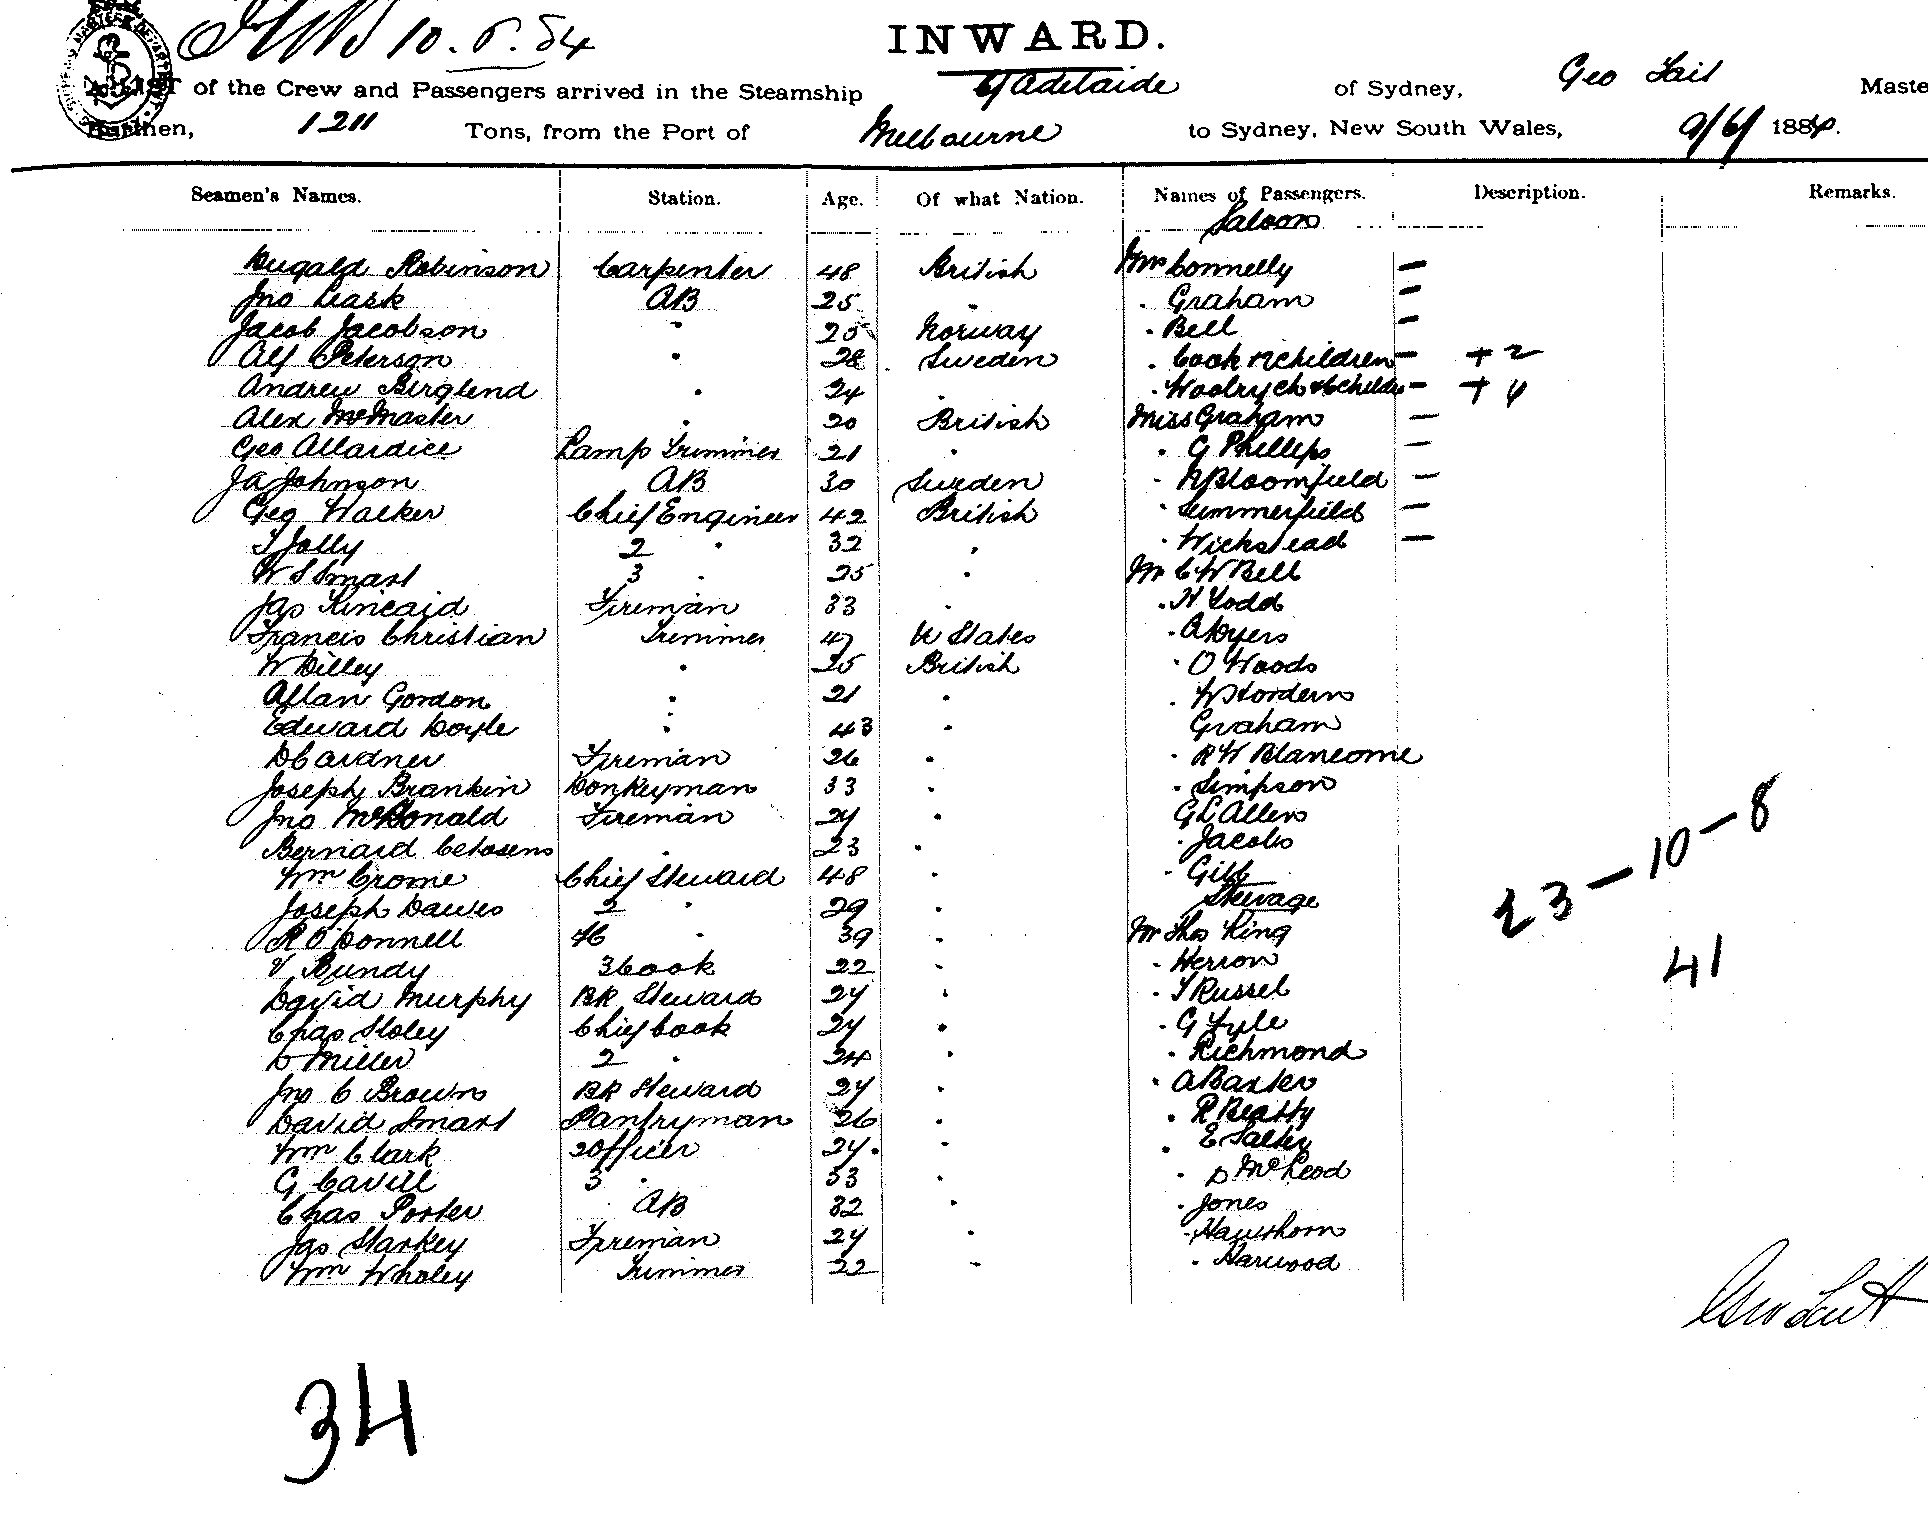 10.6.84
INWARD.
LIST of the Crew and Passengers arrived in the Steamship Cy Adelaide of Sydney, Geo Tait Maste
Burthen, 1211 Tons, from the Port of Melbourne to Sydney, New South Wales, 9/6/ 1884.
Seamen's Names. Station. Age. Of what Nation. Names of Passengers. Description. Remarks.
Saloon
Dugald Robinson Carpenter 48 British Mrs Connelly —
Jno Leask AB 25 " " Graham —
Jacob Jacobson " 25 Norway " Bell —
Alf Peterson " 28 Sweden " Cook & 2 children — + 2
Andrew Berglend " 24 " " Woolrych & 6 childn — + 6
Alex McMaster " 20 British Miss Graham —
Geo Allardice Lamp Trimmer 21 " " G Phillips —
Ja Johnson AB 30 Sweden " R Bloomfield —
Geo Walker Chief Engineer 42 British " Summerfield —
T Jolly 2 " 32 " " Wickstead —
W S Smart 3 " 25 " Mr C W Bell
Jas Kincaid Fireman 33 " " H Todd
Francis Christian Trimmer 47 U States " A Myers
W Dilley " 25 British " O Woods
Allan Gordon " 21 " " W Hordern
Edward Doyle " 43 " Graham
D Cardner Fireman 26 " " R W Blancome
Joseph Brankin Donkeyman 33 " " Simpson
Jno McDonald Fireman 24 " G L Allen
Bernard " 23 " " Jacobs
Wm Crome Chief Steward 48 " " Gill
Joseph Dawes 2 " 29 " Steerage
R O'Donnell " 39 " Mr Thos King
V Bundy 3 Cook 22 " " Herron
David Murphy BR Steward 24 " " T Russel
Chas Sloley Chief Cook 24 " " G Lyle
D Miller 2 " 24 " " Richmond
Jno C Brown BR Steward 24 " " A Baxter
David Smart Pantryman 26 " " R Beatty
Wm Clark 2 Officer 24 " " E Salter
G Cavill 3 " 33 " " D McLeod
Chas Porter AB 32 " " Jones
Jas Starkey Fireman 24 " " Hawthorn
Wm Wholey Trimmer 22 " " Harwood
23 — 10 — 8
41
Geo Tait
34